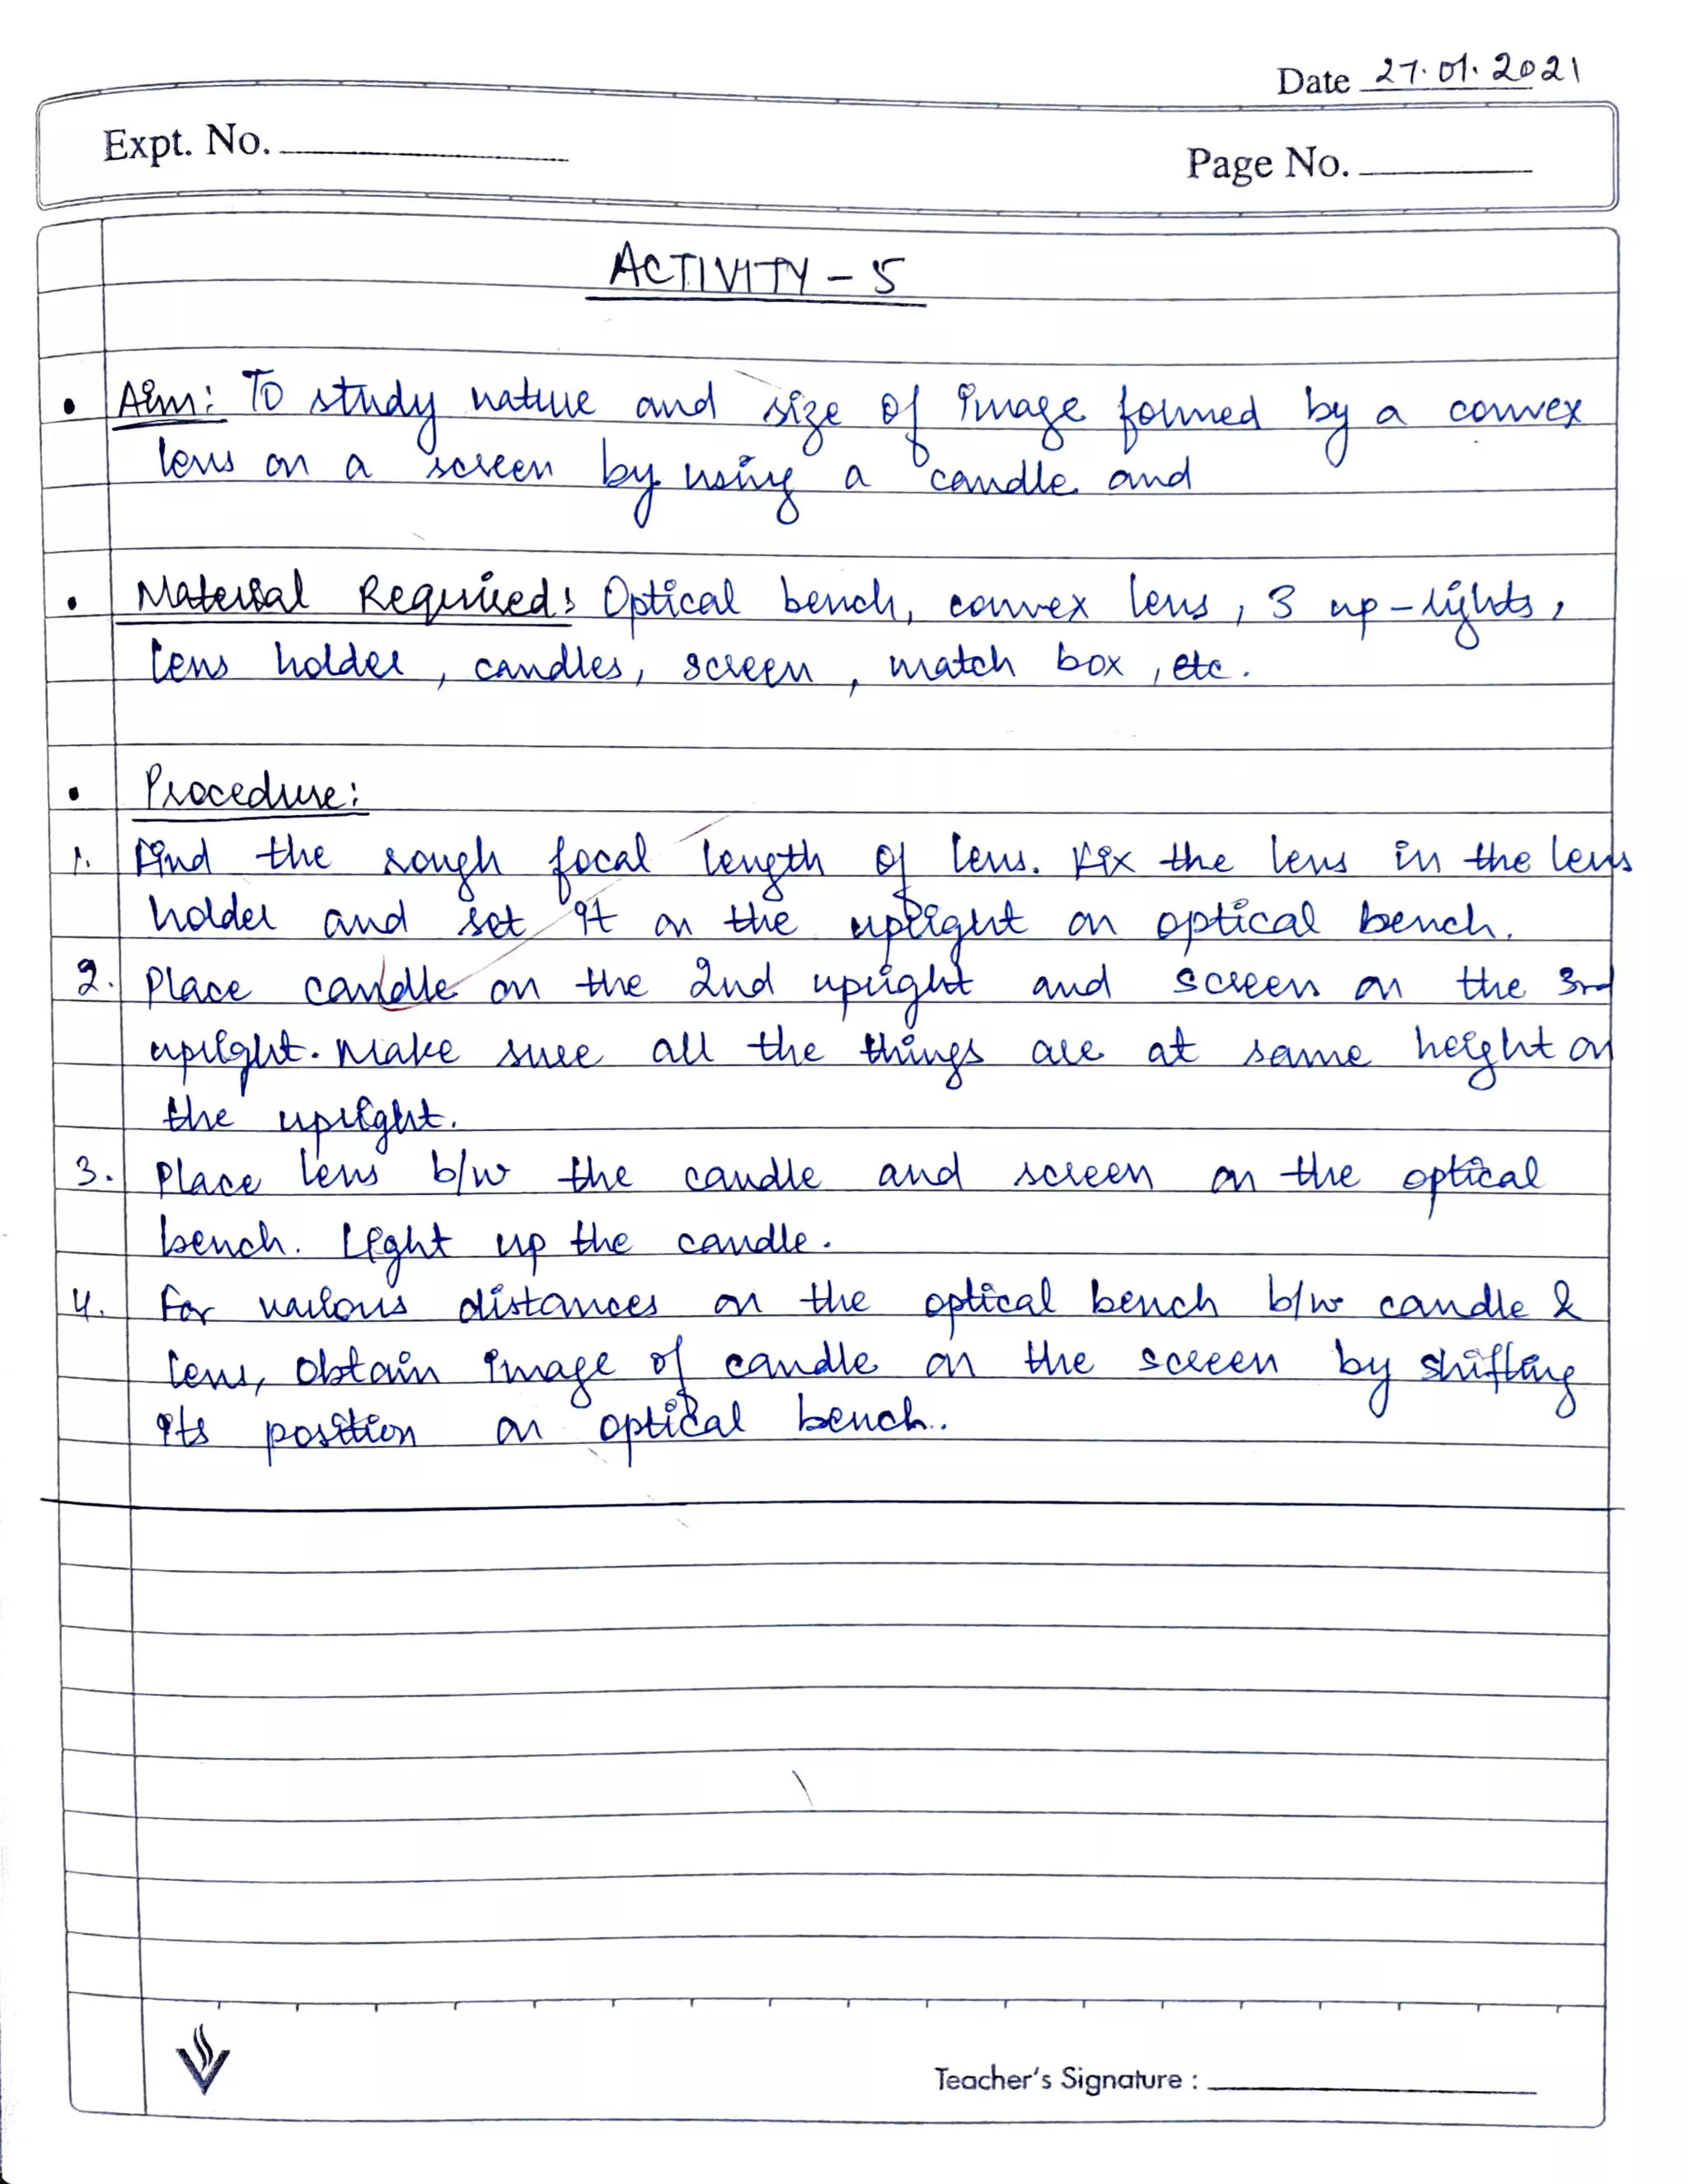 Date 27.01.2021
Expt. No.
Page No.
ACTIVITY - 5
• Aim: To study nature and size of image formed by a convex
lens on a screen by using a candle and
• Material Required: Optical bench, convex lens, 3 up-rights,
lens holder, candles, screen, match box, etc.
• Procedure:
1. Find the rough focal length of lens. Fix the lens in the lens
holder and set it on the upright on optical bench.
2. Place candle on the 2nd upright and screen on the 3rd
upright. Make sure all the things are at same height on
the upright.
3. Place lens b/w the candle and screen on the optical
bench. Light up the candle.
4. For various distances on the optical bench b/w candle &
lens, obtain image of candle on the screen by shifting
its position on optical bench.
Teacher's Signature :